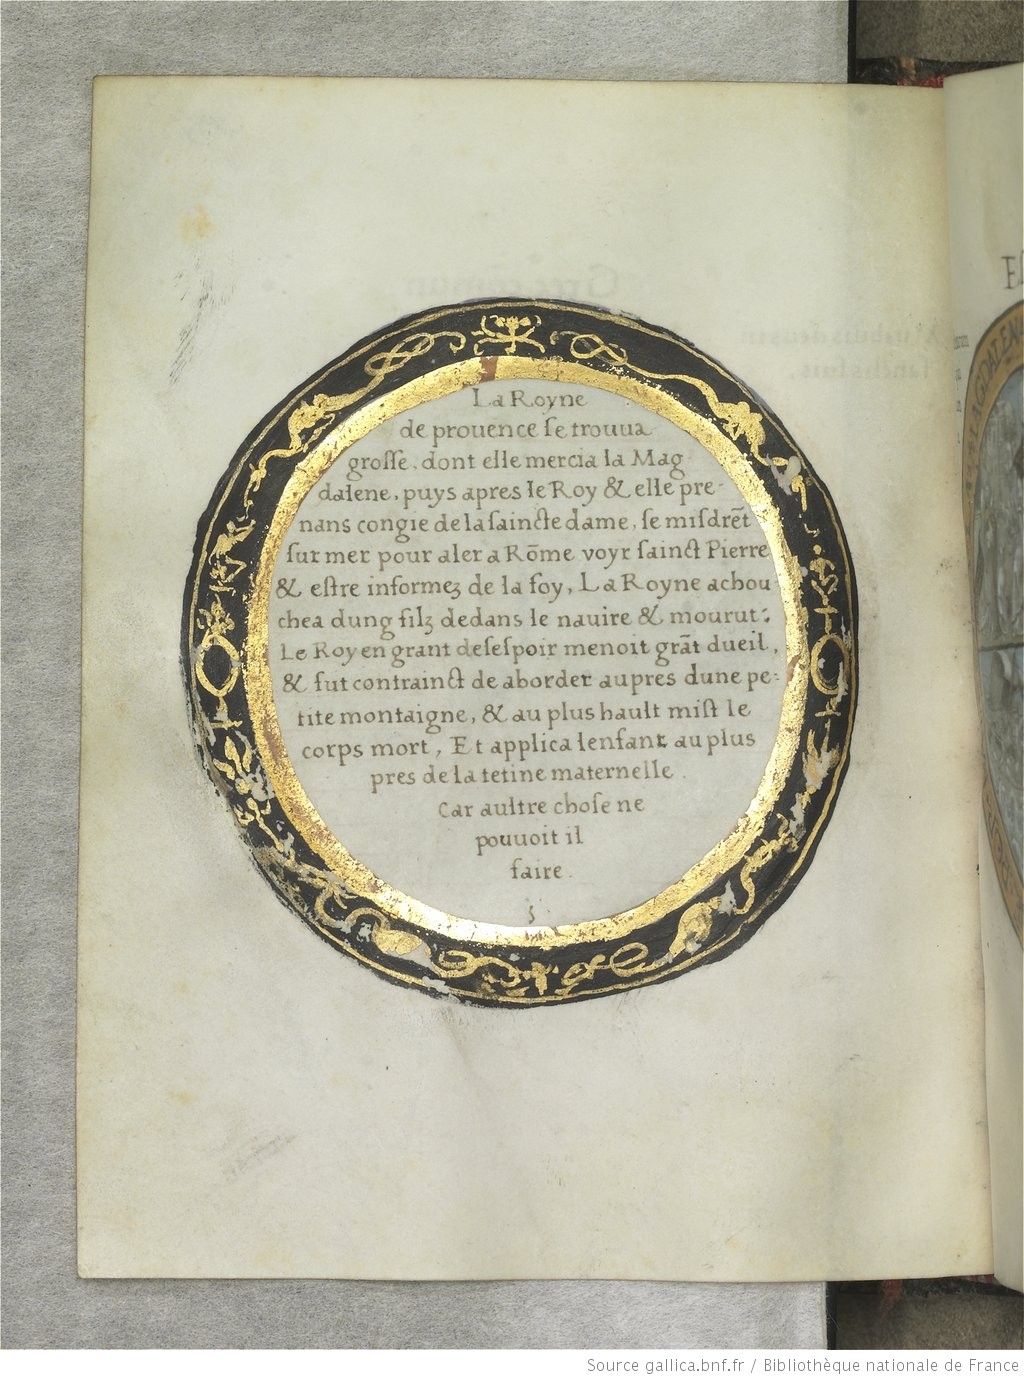 La Royne
de prouence ſe trouua
groſſe. dont elle mercia la Mag
dalene, puys apres le Roy & elle pre-
nans congie de la ſaincte dame, ſe miſdrēt
ſur mer pour aler a Rōme voyr ſainct Pierre
& eſtre informez de la foy, La Royne achou
chea dung filz dedans le nauire & mourut:
Le Roy en grant deſeſpoir menoit grāt dueil,
& fut contrainct de aborder aupres dune pe-
tite montaigne, & au plus hault miſt le
corps mort, Et applica lenfant au plus
pres de la tetine maternelle.
Car aultre choſe ne
pouuoit il
faire.
MAGDALENA
Source gallica.bnf.fr / Bibliothèque nationale de France